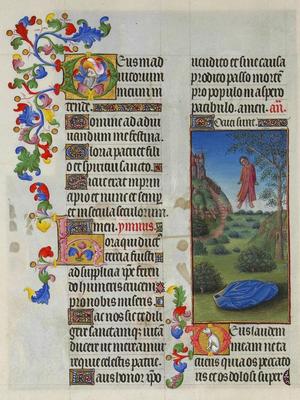 Deus in ad
iutorium
meum in
tende.
Domine ad adiu
uandum me festina.
Gloria patri et fili
et spiritui sancto.
Sicut erat in prin
cipio et nunc et semp
et in secula seculorum
amen. ymnus.
Hora qui duct
tercia fuisti
ad supplicia xpe feren
do humeris crucem
pro nobis miseris.
Fac nos sic te dili
gere sanctamque uita
ducere ut mereamur
requie celestis patrie
Laus honor xpo
uendito et sine causa
prodito passo morte
pro populo in aspero
patibulo. amen. an
Deus laudem
meam ne ta
cueris quia os peccato
ris et os dolosi super